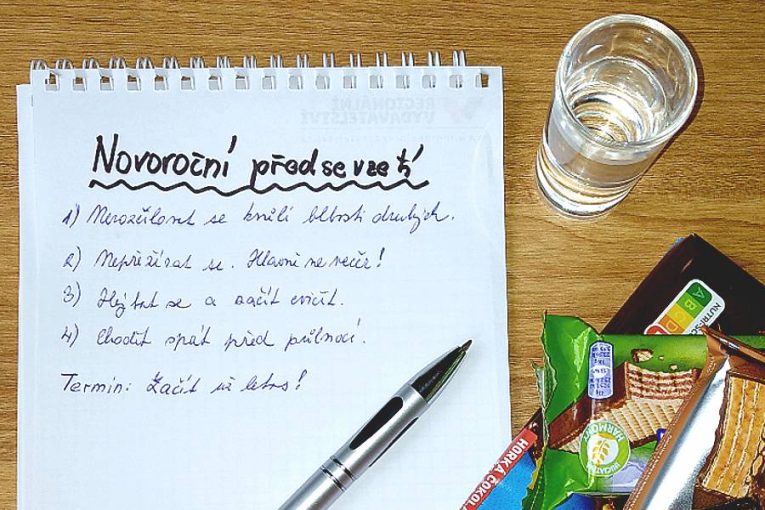 REGIONÁLNÍ
VYDAVATELSTVÍ
Novoroční předsevzetí
1) Nerozčilovat se kvůli blbosti druhých.
2) Nepřežírat se. Hlavně ne večer!
3) Hýbat se a začít cvičit.
4) Chodit spát před půlnocí.
Termín: Začít už letos!
NUTRI-SCORE
A
B
C
D
HARMONY
HORKÁ ČOKOL